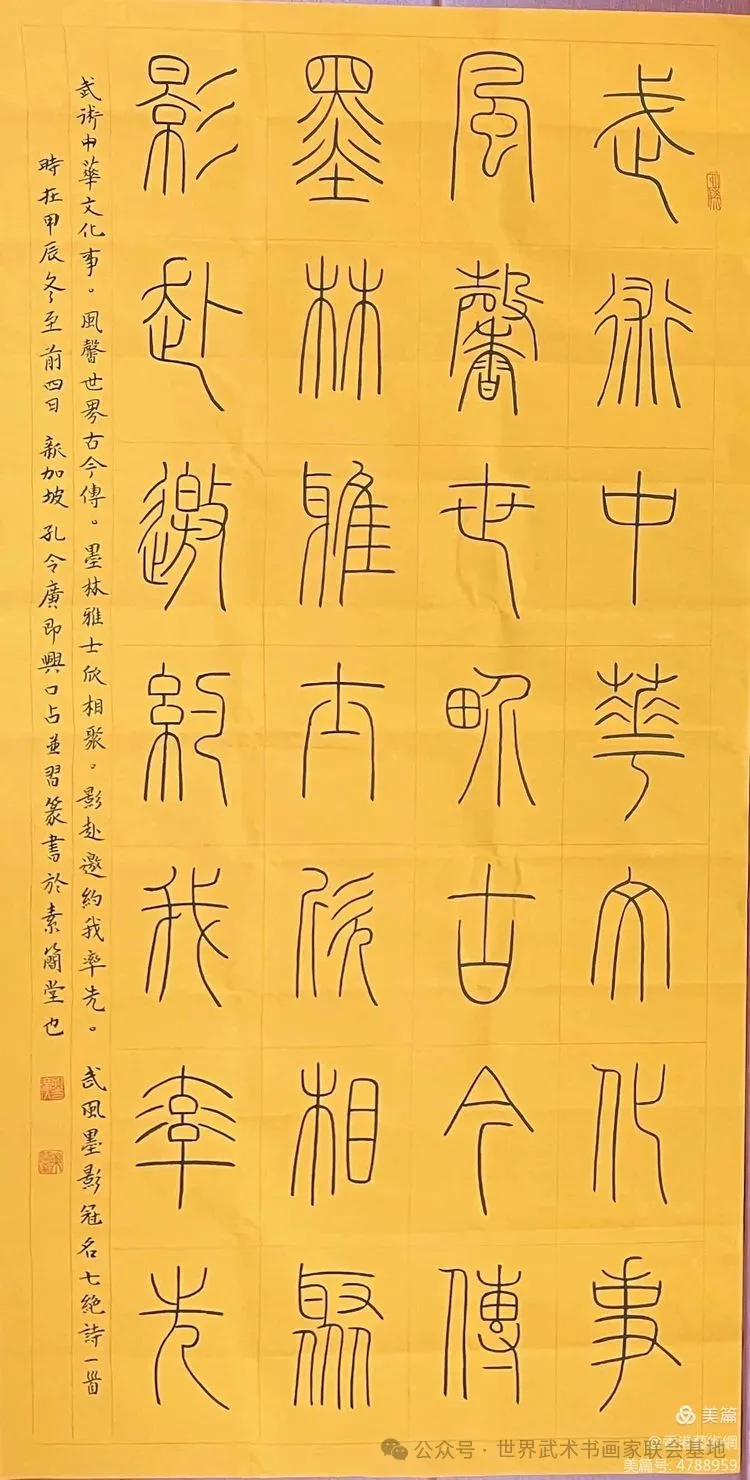 武術中華文化事
風馨世界古今傳
墨林雅士欣相聚
影赴邀約我率先
武術中華文化事。風馨世界古今傳。墨林雅士欣相聚。影赴邀約我率先。 武風墨影冠名七絕詩一首
時在甲辰冬至前四日 新加坡孔令廣即興口占並習篆書於素簡堂也
美篇
@香港藝術網
公众号·世界武术书画家联会基地
美篇号: 4788959